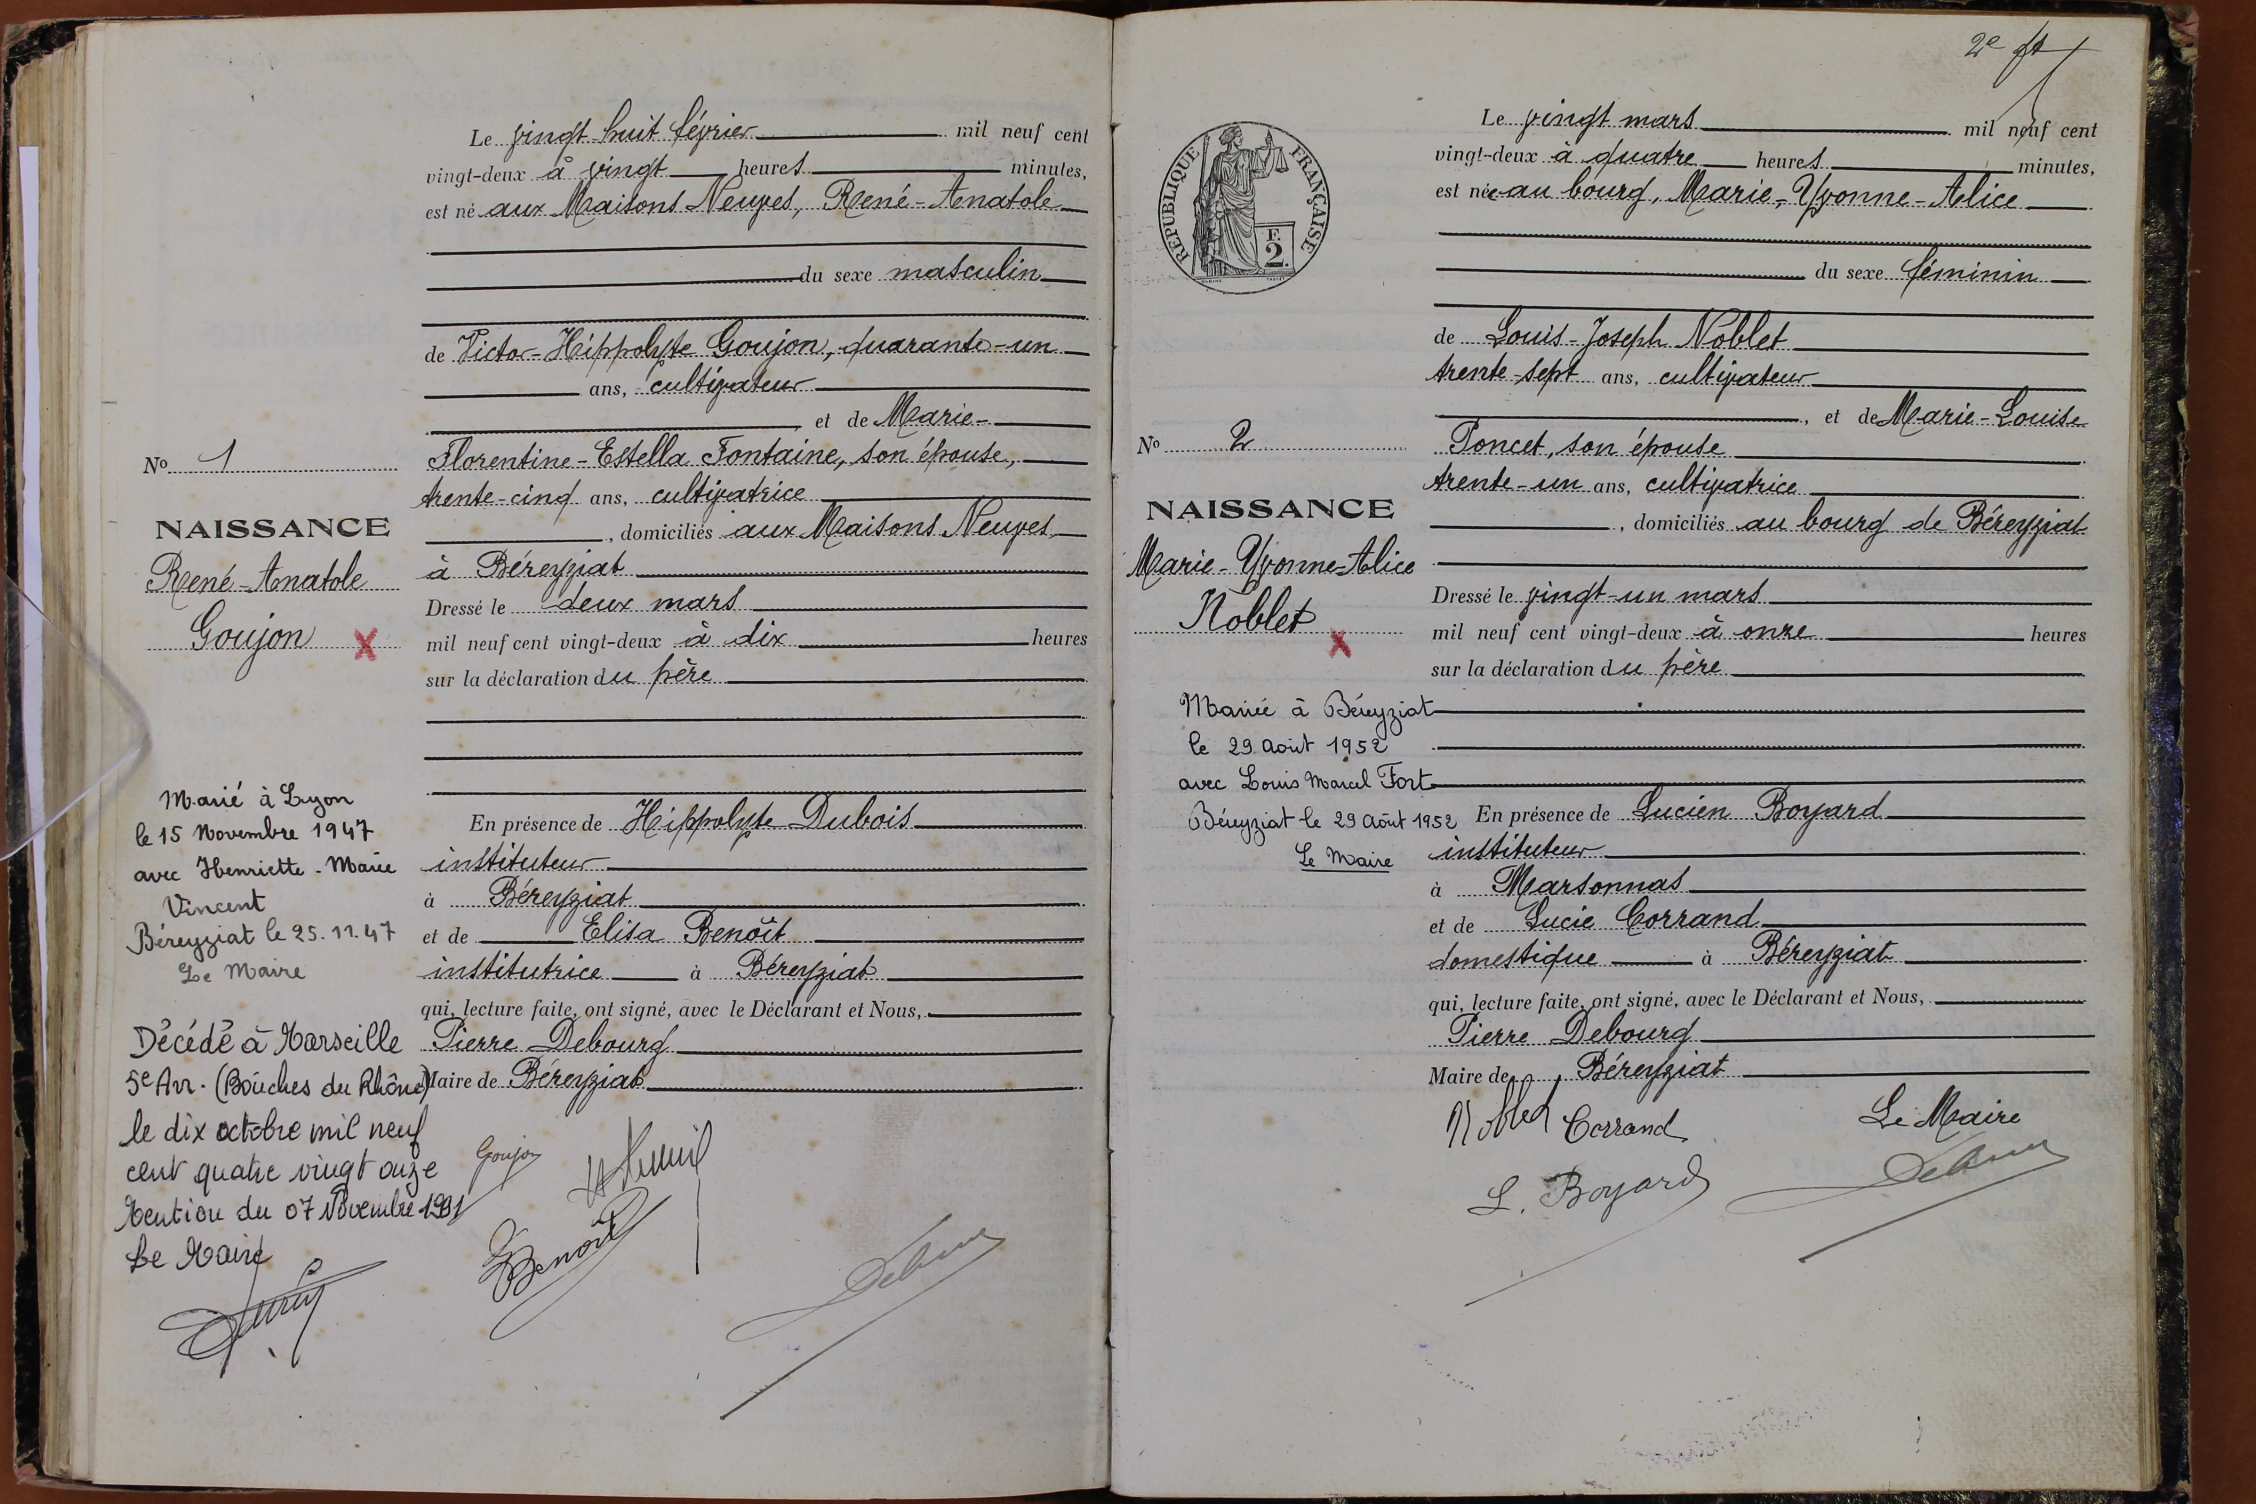 Le vingt-huit février mil neuf cent
vingt-deux à vingt heures minutes,
est né aux Maisons Neuves, René-Anatole
du sexe masculin
de Victor-Hippolyte Goujon, quarante-un
ans, cultivateur
, et de Marie-
Florentine-Estella Fontaine, son épouse,
trente-cinq ans, cultivatrice
, domiciliés aux Maisons Neuves
à Béreyziat
Dressé le deux mars
mil neuf cent vingt-deux à dix heures
sur la déclaration du père
En présence de Hippolyte Dubois
instituteur
à Béreyziat
et de Elisa Benoît
institutrice à Béreyziat
qui, lecture faite, ont signé, avec le Déclarant et Nous,
Pierre Debourg
Maire de Béreyziat
Goujon
Benoît
No 1
NAISSANCE
René-Anatole
Goujon X
Marié à Lyon
le 15 Novembre 1947
avec Henriette-Marie
Vincent
Béreyziat le 25.11.47
Le Maire
Décédé à Marseille
5e Arr. (Bouches du Rhône)
le dix octobre mil neuf
cent quatre vingt onze
Mention du 07 Novembre 1991
Le Maire
2e
RÉPUBLIQUE FRANÇAISE
F.
2.
Le vingt mars mil neuf cent
vingt-deux à quatre heures minutes,
est née au bourg, Marie-Yvonne-Alice
du sexe féminin
de Louis-Joseph Noblet
trente-sept ans, cultivateur
, et de Marie-Louise
Poncet, son épouse
trente-un ans, cultivatrice
, domiciliés au bourg de Béreyziat
Dressé le vingt-un mars
mil neuf cent vingt-deux à onze heures
sur la déclaration du père
En présence de Lucien Boyard
instituteur
à Marsonnas
et de Lucie Corrand
domestique à Béreyziat
qui, lecture faite, ont signé, avec le Déclarant et Nous,
Pierre Debourg
Maire de Béreyziat
Noblet Corrand Le Maire
L. Boyard
No 2
NAISSANCE
Marie-Yvonne-Alice
Noblet X
Mariée à Béreyziat
le 29 Août 1952
avec Louis Marcel Fort
Béreyziat le 29 Août 1952
Le Maire